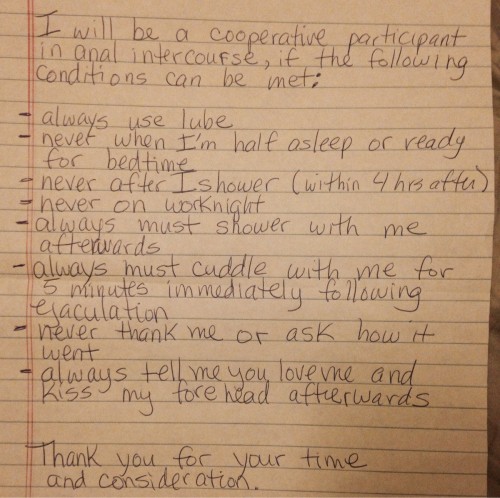 I will be a cooperative participant
in anal intercourse, if the following
conditions can be met:
- always use lube
- never when I'm half asleep or ready
for bedtime
- never after I shower (within 4 hrs after)
- never on worknight
- always must shower with me
afterwards
- always must cuddle with me for
5 minutes immediately following
ejaculation
- never thank me or ask how it
went
- always tell me you love me and
kiss my forehead afterwards
Thank you for your time
and consideration.